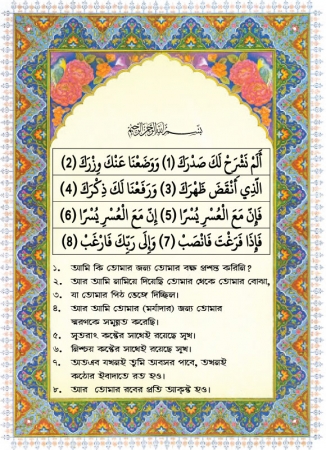 بسم الله الرحمن الرحيم
أَلَمْ نَشْرَحْ لَكَ صَدْرَكَ (1) وَوَضَعْنَا عَنْكَ وِزْرَكَ (2)
الَّذِي أَنْقَضَ ظَهْرَكَ (3) وَرَفَعْنَا لَكَ ذِكْرَكَ (4)
فَإِنَّ مَعَ الْعُسْرِ يُسْرًا (5) إِنَّ مَعَ الْعُسْرِ يُسْرًا (6)
فَإِذَا فَرَغْتَ فَانْصَبْ (7) وَإِلَى رَبِّكَ فَارْغَبْ (8)
১। আমি কি তোমার জন্য তোমার বক্ষ প্রশস্ত করিনি?
২। আর আমি নামিয়ে দিয়েছি তোমার থেকে তোমার বোঝা,
৩। যা তোমার পিঠ ভেঙ্গে দিচ্ছিল।
৪। আর আমি তোমার (মর্যাদার) জন্য তোমার
স্মরণকে সমুন্নত করেছি।
৫। সুতরাং কষ্টের সাথেই রয়েছে সুখ।
৬। নিশ্চয় কষ্টের সাথেই রয়েছে সুখ।
৭। অতএব যখনই তুমি অবসর পাবে, তখনই
কঠোর ইবাদাতে রত হও।
৮। আর তোমার রবের প্রতি আকৃষ্ট হও।